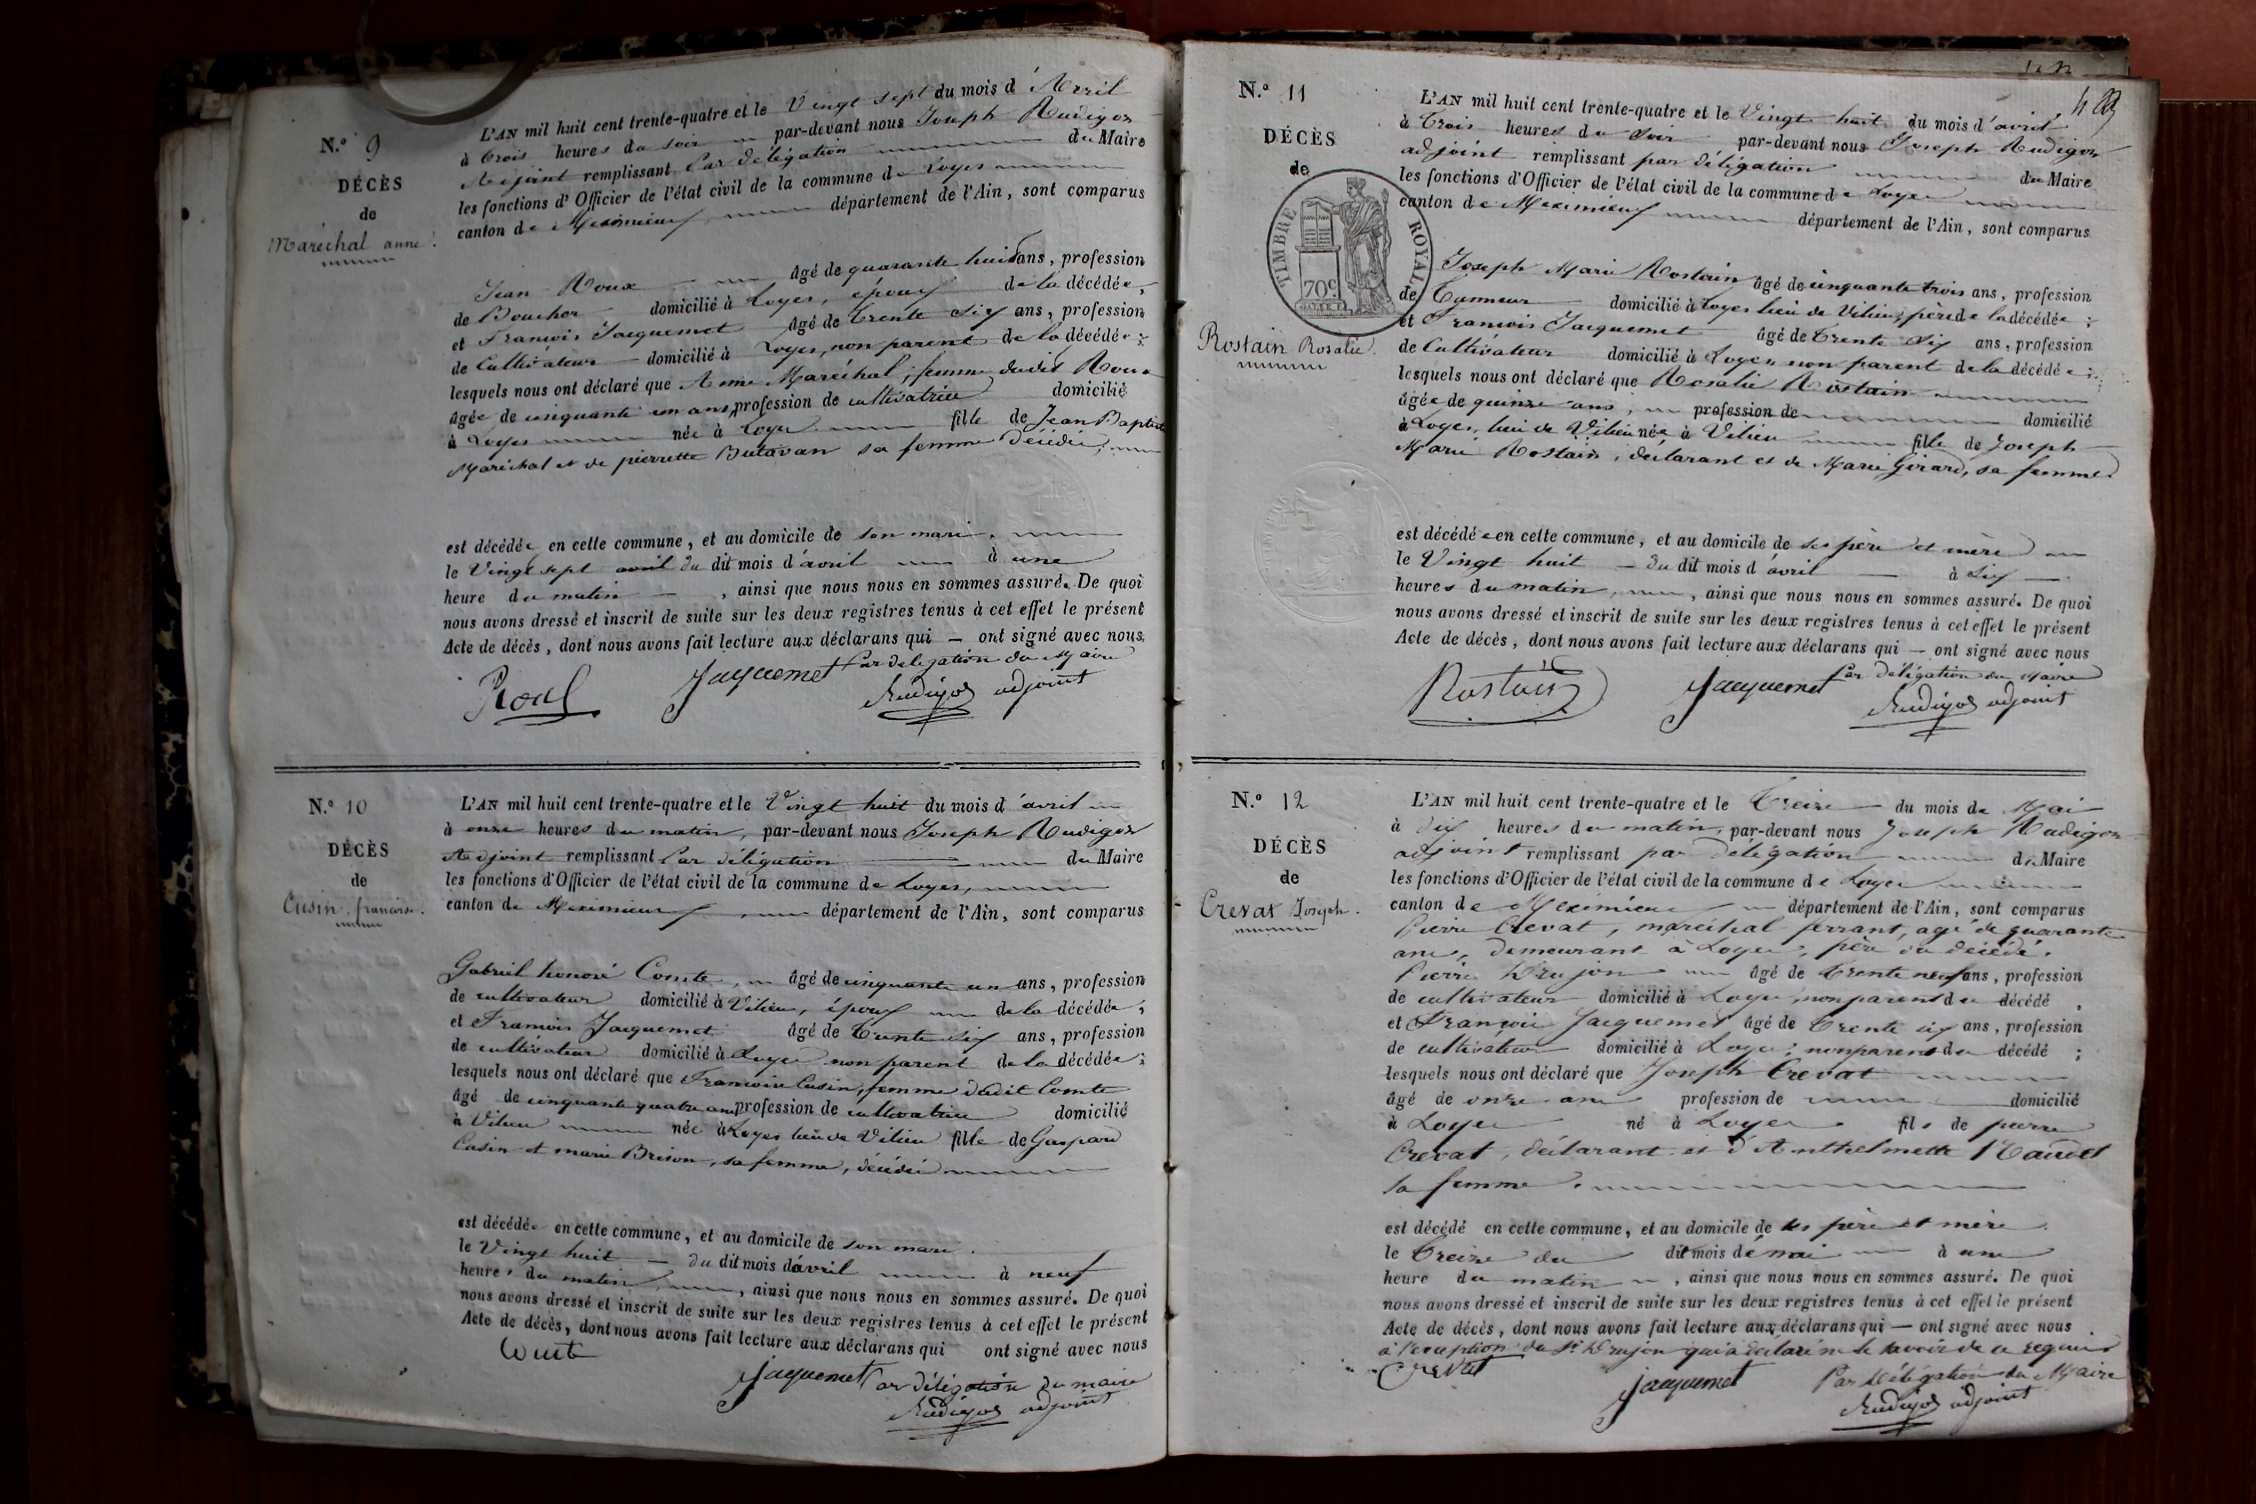 N.° 9
DÉCÈS
de
Maréchal anne.
L'AN mil huit cent trente-quatre et le Vingt sept du mois d'Avril
à trois heures du soir par-devant nous Joseph Rudigoz
Adjoint remplissant Par délégation du Maire
les fonctions d'Officier de l'état civil de la commune de Loyes
canton de Meximieux département de l'Ain, sont comparus
Jean Roux âgé de quarante huit ans, profession
de Boucher domicilié à Loyes, époux de la décédée,
et François Jacquemet âgé de trente six ans, profession
de Cultivateur domicilié à Loyes, non parent de la décédée;
lesquels nous ont déclaré que Anne Maréchal, femme dudit Roux
âgée de cinquante un ans, profession de cultivatrice domicilié
à Loyes née à Loyes fille de Jean Baptiste
Maréchal et de pierrette Butavan sa femme Décédée,
est décédée en cette commune, et au domicile de son mari,
le Vingt sept avril du dit mois d'avril à une
heure du matin, ainsi que nous nous en sommes assuré. De quoi
nous avons dressé et inscrit de suite sur les deux registres tenus à cet effet le présent
Acte de décès, dont nous avons fait lecture aux déclarans qui — ont signé avec nous.
Jacquemet Par délégation du Maire
Rudigoz adjoint
N.° 10
DÉCÈS
de
Cusin françoise.
L'AN mil huit cent trente-quatre et le Vingt huit du mois d'avril
à onze heures du matin, par-devant nous Joseph Rudigoz
Adjoint remplissant Par délégation du Maire
les fonctions d'Officier de l'état civil de la commune de Loyes,
canton de Meximieux, département de l'Ain, sont comparus
Gabriel honoré Comte, âgé de cinquante un ans, profession
de cultivateur domicilié à Vilieu, époux de la décédée,
et François Jacquemet âgé de trente six ans, profession
de cultivateur domicilié à Loyes non parent de la décédée;
lesquels nous ont déclaré que Françoise Cusin, femme dudit Comte
âgé de cinquante quatre ans profession de cultivatrice domicilié
à Vilieu née à Loyes lieu de Vilieu fille de Gaspard
Cusin et marie Brison, sa femme, décédée
est décédée en cette commune, et au domicile de son mari.
le Vingt huit — du dit mois d'avril à neuf
heures du matin, ainsi que nous nous en sommes assuré. De quoi
nous avons dressé et inscrit de suite sur les deux registres tenus à cet effet le présent
Acte de décès, dont nous avons fait lecture aux déclarans qui ont signé avec nous
Comte
Jacquemet Par délégation du maire
Rudigoz adjoint
N.° 11
DÉCÈS
de
TIMBRE ROYAL
70c
Rostain Rosalie.
L'AN mil huit cent trente-quatre et le Vingt huit du mois d'avril
à Trois heures du soir par-devant nous Joseph Rudigoz
adjoint remplissant par délégation du Maire
les fonctions d'Officier de l'état civil de la commune de Loyes
canton de Meximieux département de l'Ain, sont comparus
Joseph Marie Rostain âgé de cinquante trois ans, profession
de Tanneur domicilié à Loyes lieu de Vilieu, père de la décédée;
et François Jacquemet âgé de Trente six ans, profession
de Cultivateur domicilié à Loyes non parent de la décédée;
lesquels nous ont déclaré que Rosalie Rostain
âgée de quinze ans, profession de domicilié
à Loyes, lieu de Vilieu née à Vilieu fille de Joseph
Marie Rostain, déclarant et de Marie Girard, sa femme.
est décédée en cette commune, et au domicile de ses père et mère
le Vingt huit — du dit mois d'avril — à six —
heures du matin, ainsi que nous nous en sommes assuré. De quoi
nous avons dressé et inscrit de suite sur les deux registres tenus à cet effet le présent
Acte de décès, dont nous avons fait lecture aux déclarans qui — ont signé avec nous
Rostain Jacquemet Par délégation du Maire
Rudigoz adjoint
N.° 12
DÉCÈS
de
Crevat Joseph.
L'AN mil huit cent trente-quatre et le Treize du mois de Mai
à dix heures du matin, par-devant nous Joseph Rudigoz
adjoint remplissant par délégation du Maire
les fonctions d'Officier de l'état civil de la commune de Loyes
canton de Meximieux département de l'Ain, sont comparus
Pierre Crevat, maréchal ferrant, agé de quarante
ans, demeurant à Loyes, père du décédé.
Pierre Drujon âgé de trente neuf ans, profession
de cultivateur domicilié à Loyes, non parent du décédé,
et François Jacquemet âgé de trente six ans, profession
de cultivateur domicilié à Loyes; non parent du décédé;
lesquels nous ont déclaré que Joseph Crevat
âgé de onze ans profession de domicilié
à Loyes né à Loyes fils de pierre
Crevat, déclarant et d'Anthelmette
sa femme.
est décédé en cette commune, et au domicile de ses père et mère.
le Treize du dit mois de mai à une
heure du matin, ainsi que nous nous en sommes assuré. De quoi
nous avons dressé et inscrit de suite sur les deux registres tenus à cet effet le présent
Acte de décès, dont nous avons fait lecture aux déclarans qui — ont signé avec nous
à l'exception du Sr Drujon qui a déclaré ne le savoir de ce requis
Crevat Jacquemet Par délégation du Maire
Rudigoz adjoint